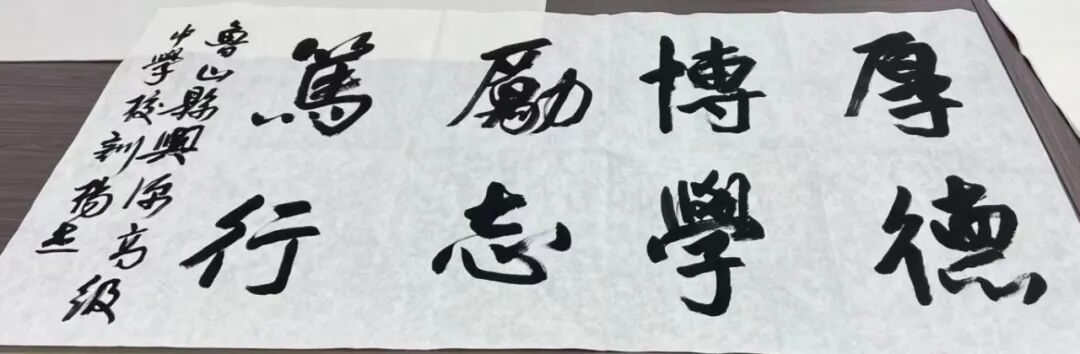 厚德
博學
勵志
篤行
魯山縣興源高级
中學校訓 楊杰